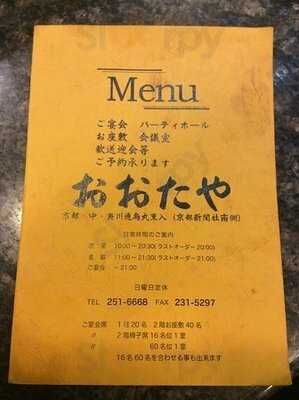 Menu
ご宴会 パーティホール
お座敷 会議室
歓送迎会等
ご予約承ります
おおたや
京都・中・夷川通烏丸東入(京都新聞社南側)
営業時間のご案内
10:00~20:30(ラストオーダー20:00)
11:00~21:30(ラストオーダー21:00)
ご宴会 ~21:00
日曜日定休
TEL 251-6668 FAX 231-5297
ご宴会席 1階20名 2階お座敷40名
〃 2階椅子席16名位1室
〃 60名位1室
16名60名を合わせる事も出来ます